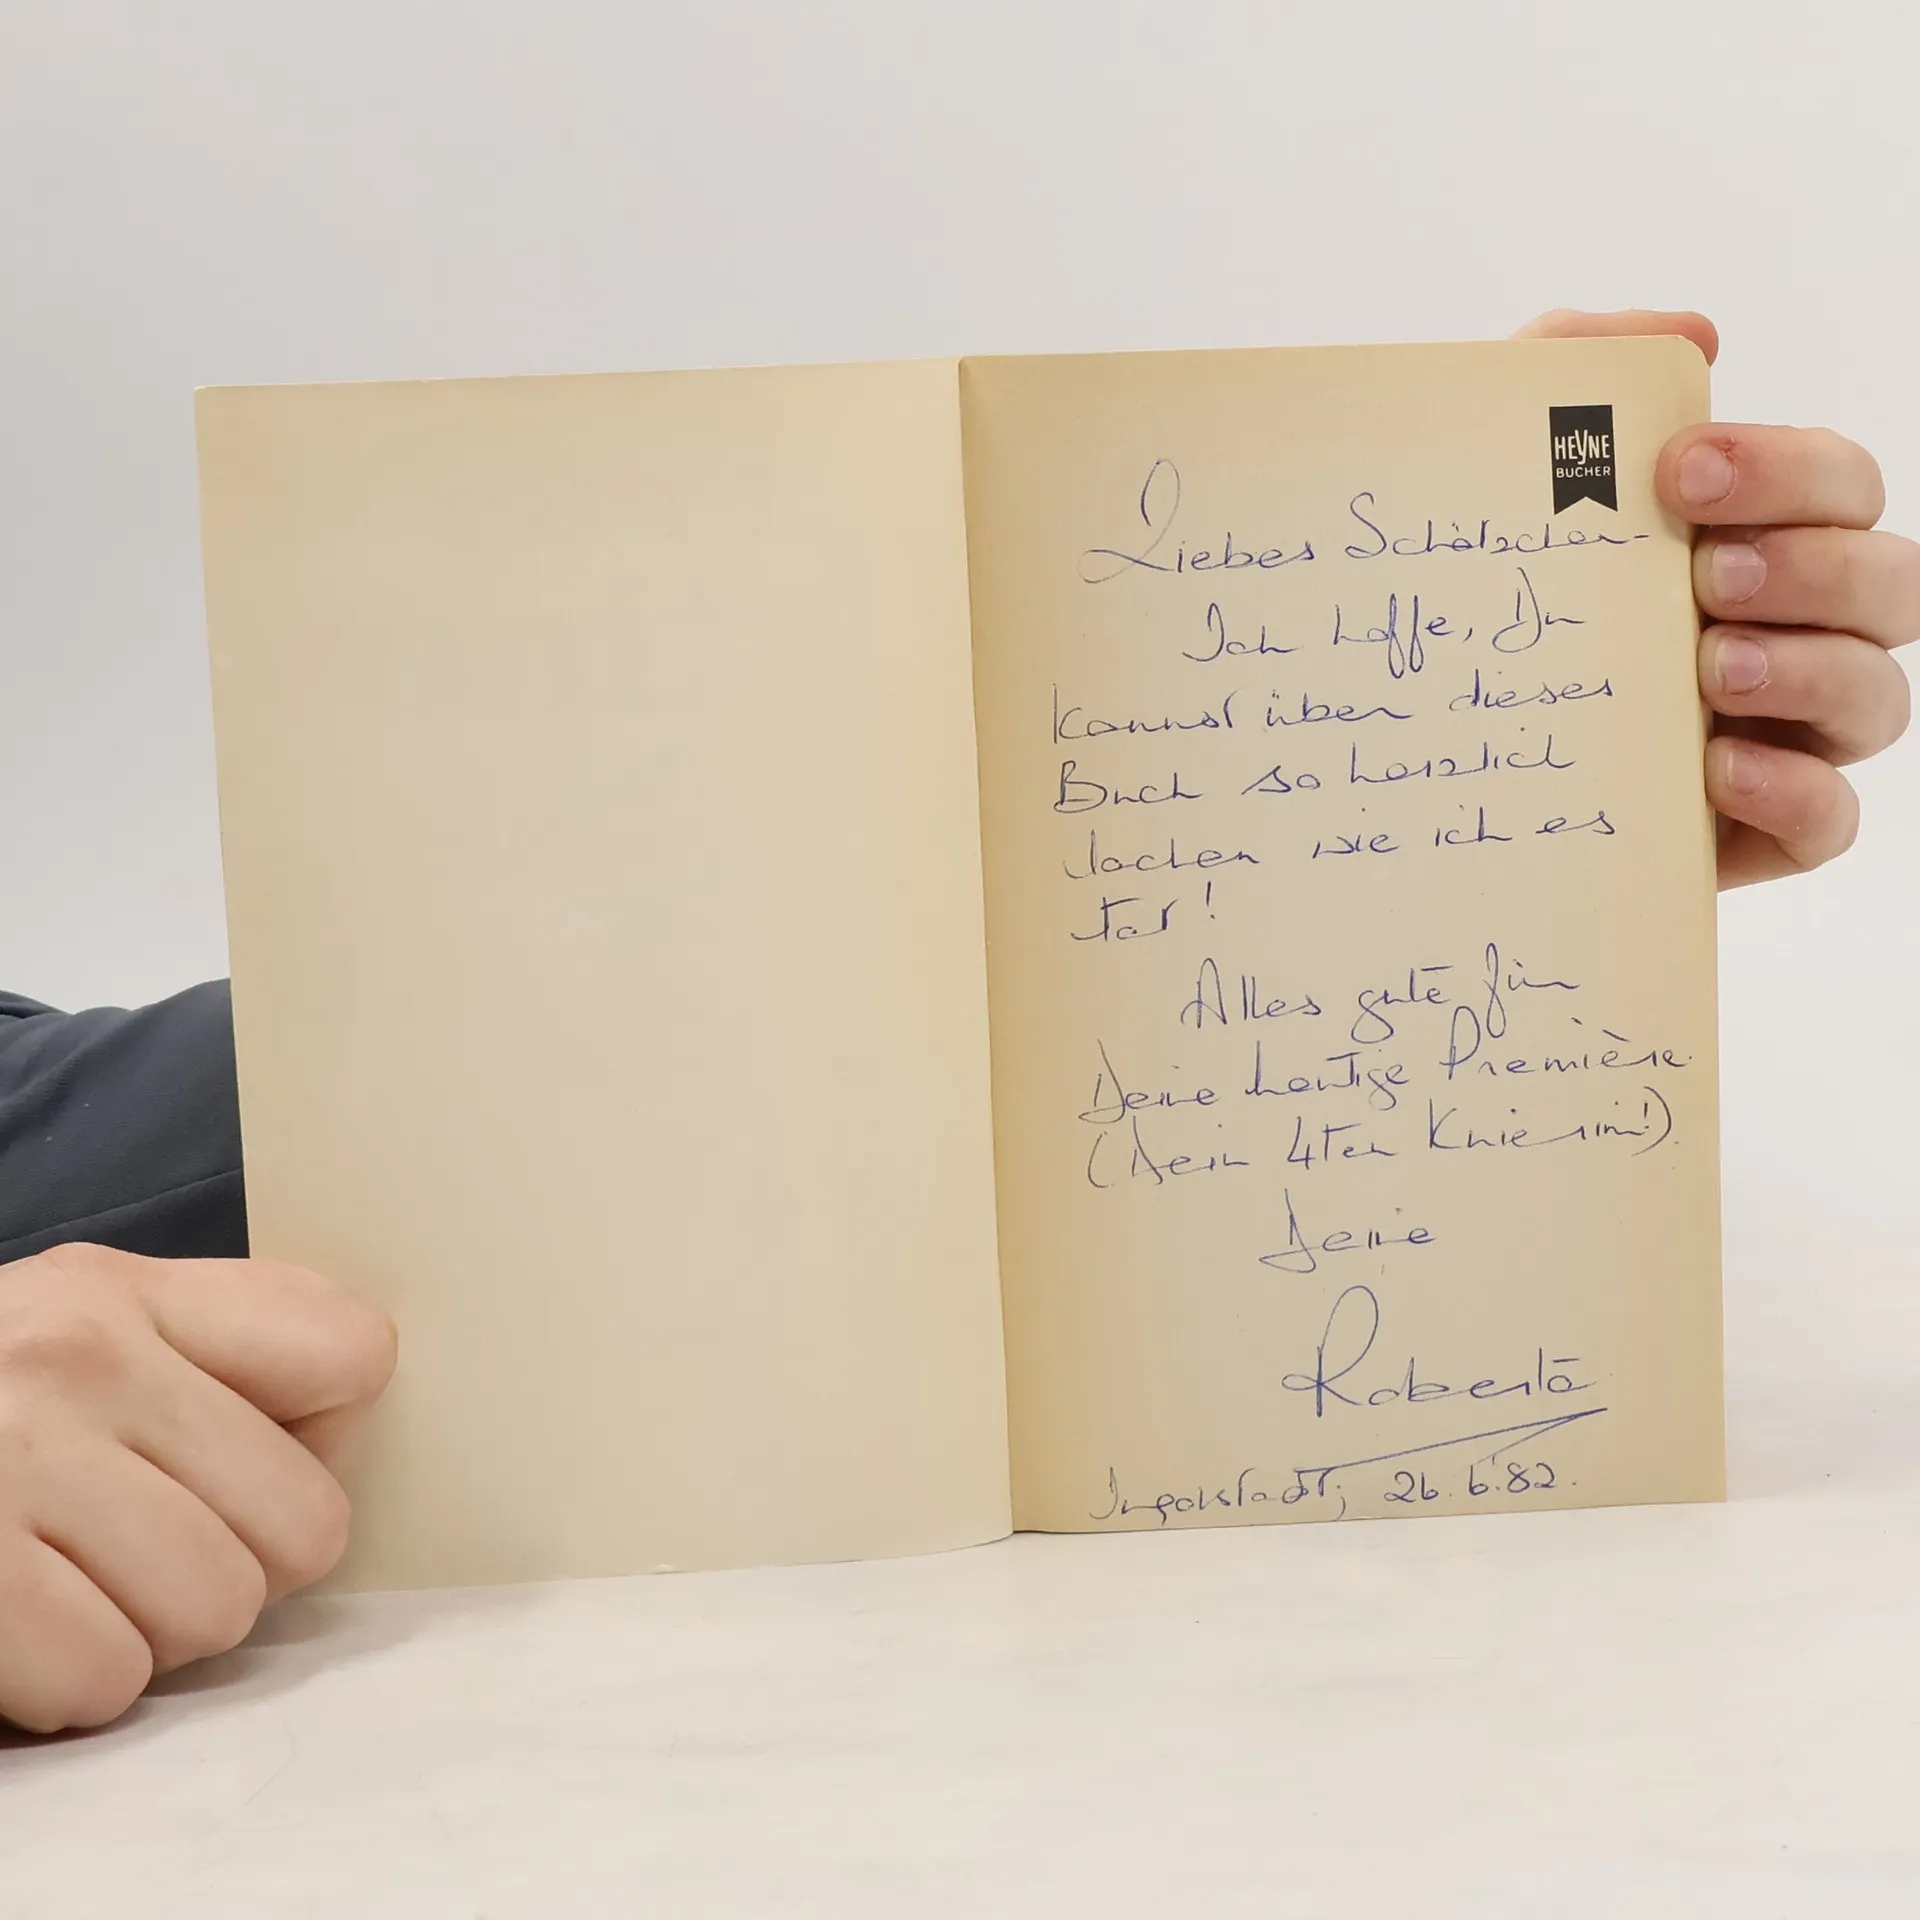 HEYNE
BÜCHER
Liebes Schätzchen-
Ich hoffe, Du
kannst über dieses
Buch so herzlich
lachen wie ich es
tat!
Alles gute für
Deine heutige Première
(Dein 4ten Knierim!)
Deine
Roberta
Ingolstadt, 26.6.82.